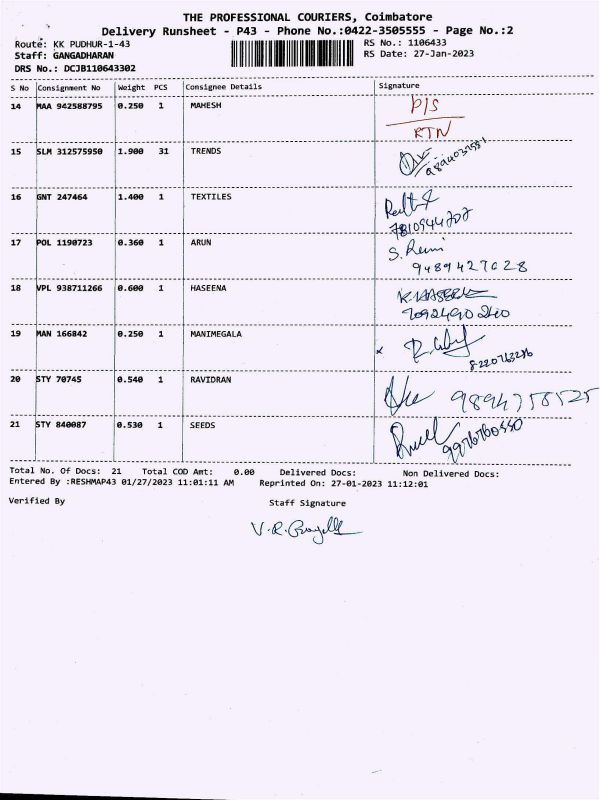 THE PROFESSIONAL COURIERS, Coimbatore
Delivery Runsheet - P43 - Phone No.:0422-3505555 - Page No.:2
Route: KK PUDHUR-1-43 RS No.: 1106433
Staff: GANGADHARAN RS Date: 27-Jan-2023
DRS No.: DCJB110643302
S No Consignment No Weight PCS Consignee Details Signature
14 MAA 942588795 0.250 1 MAHESH P/S
RTN
15 SLM 312575950 1.900 31 TRENDS
16 GNT 247464 1.400 1 TEXTILES
7810944707
17 POL 1190723 0.360 1 ARUN S. Remi
9489427028
18 VPL 938711266 0.600 1 HASEENA
7092490240
19 MAN 166842 0.250 1 MANIMEGALA
8220763286
20 STY 70745 0.540 1 RAVIDRAN
21 STY 840087 0.530 1 SEEDS
Total No. Of Docs: 21 Total COD Amt: 0.00 Delivered Docs: Non Delivered Docs:
Entered By :RESHMAP43 01/27/2023 11:01:11 AM Reprinted On: 27-01-2023 11:12:01
Verified By Staff Signature